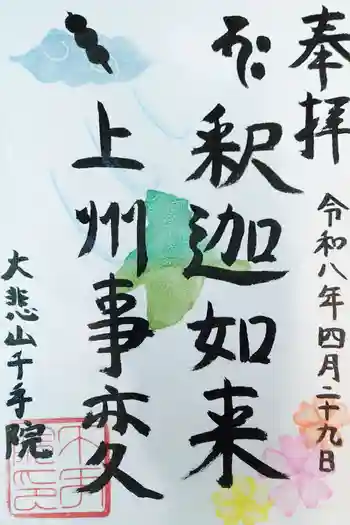 奉拝
令和八年四月二十九日
釈迦如来
上州事変
大悲山千手院